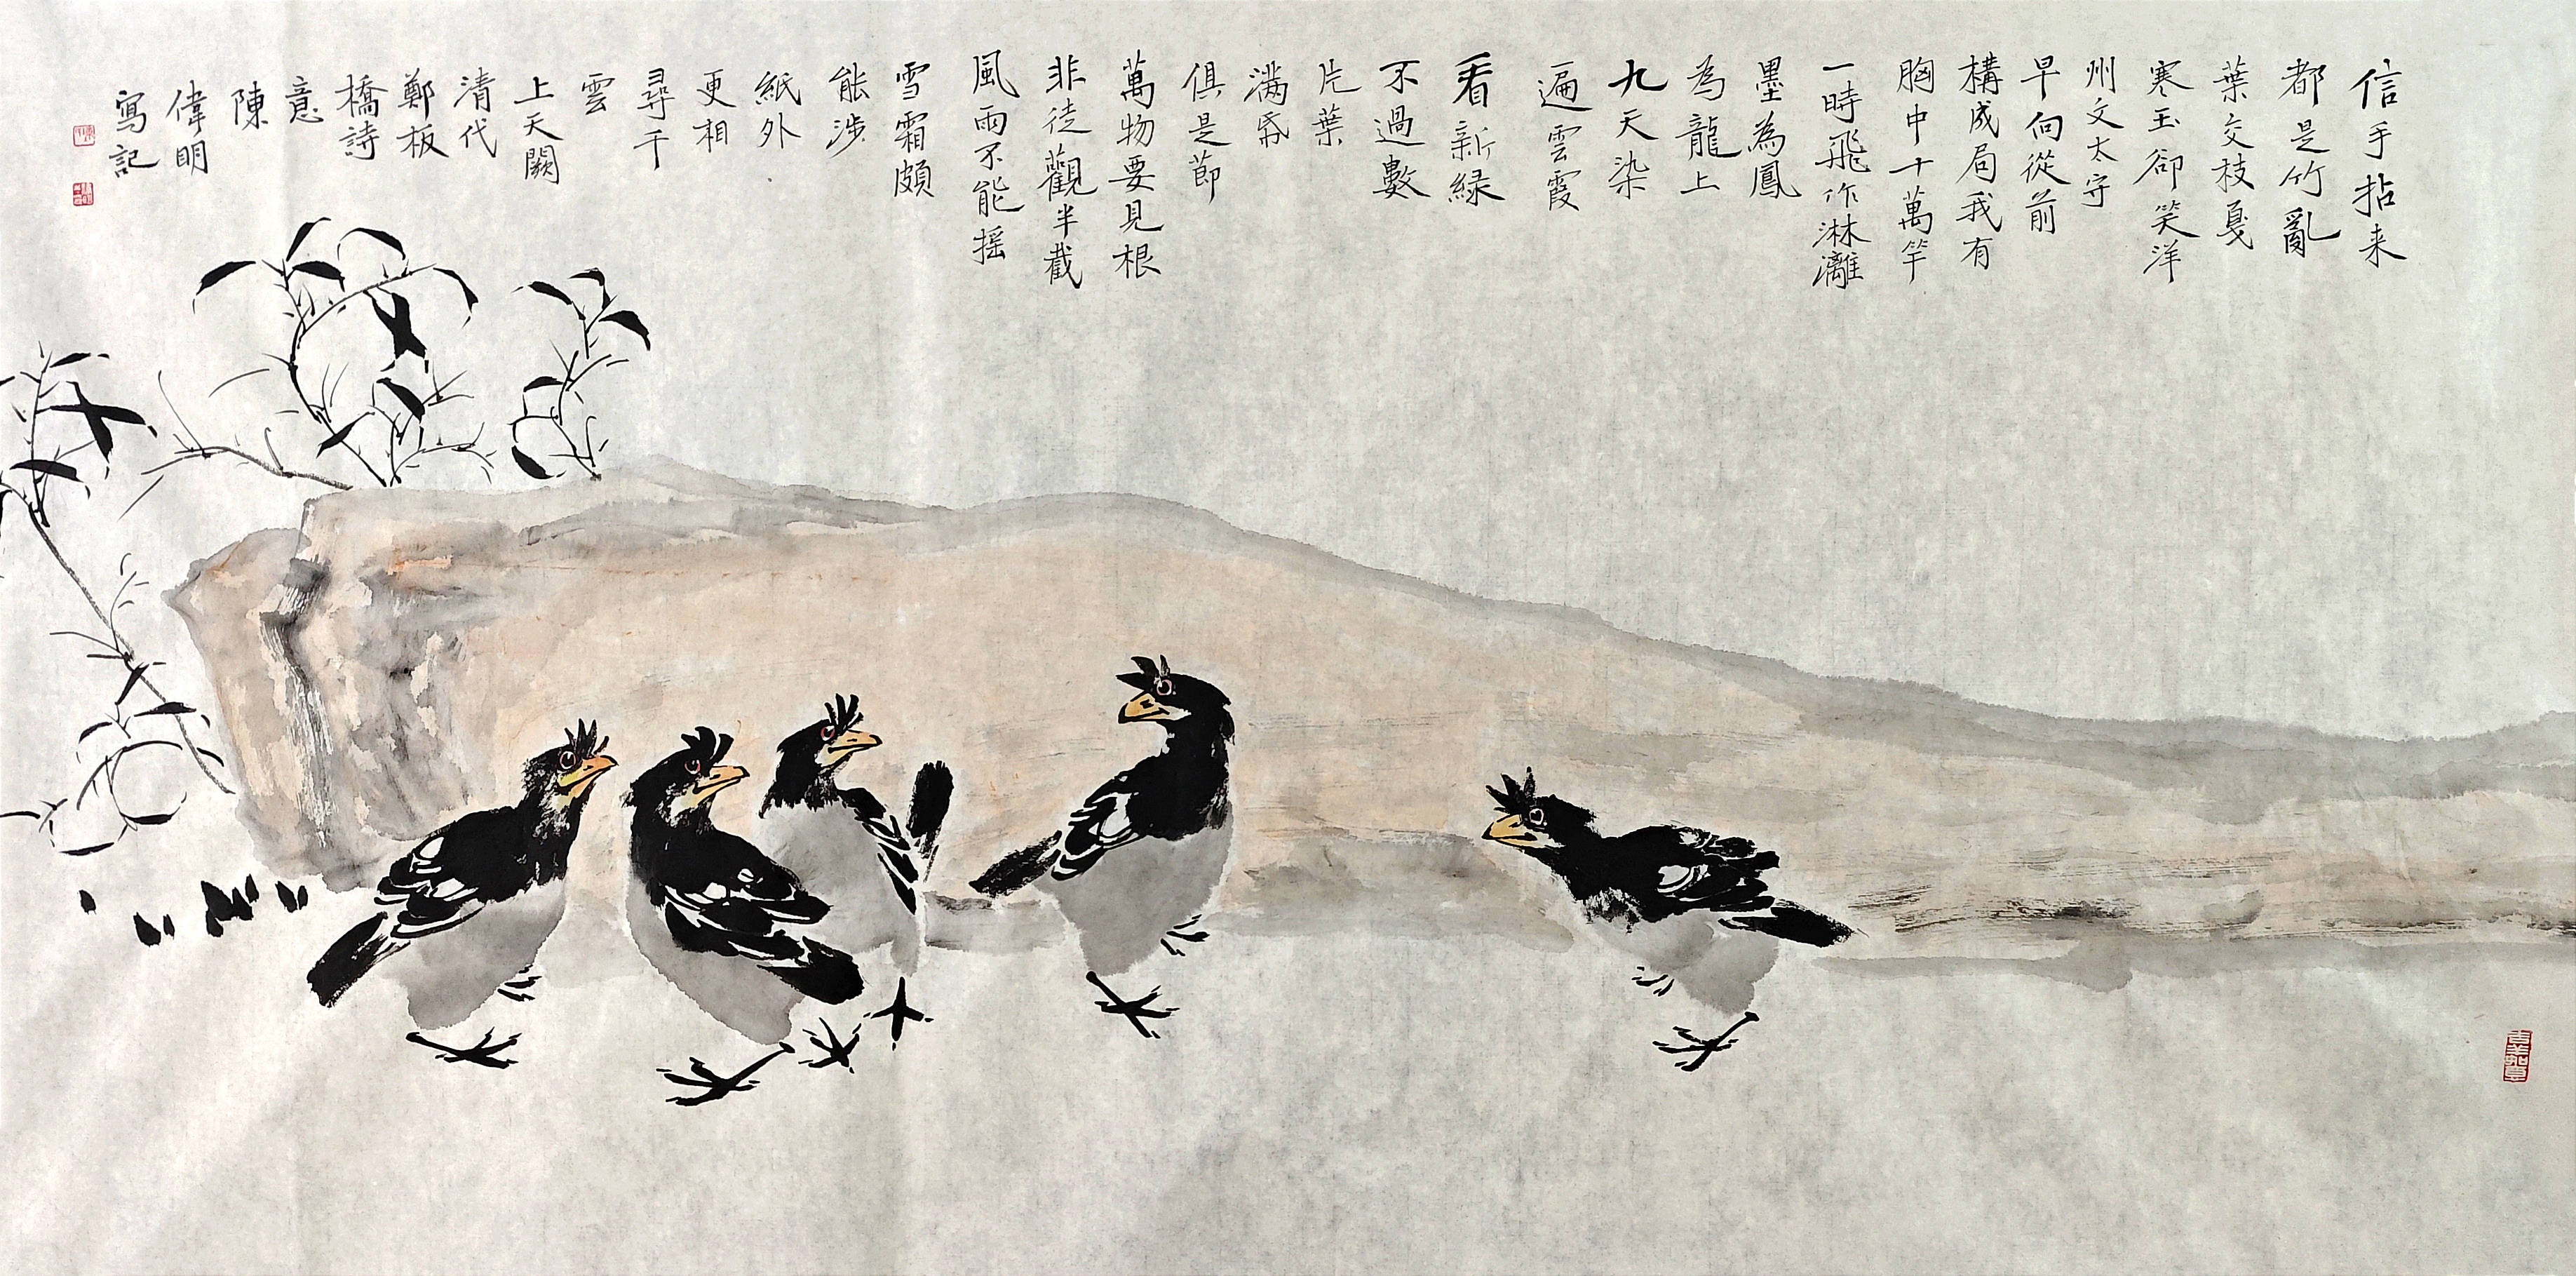 信手拈来
都是竹亂
葉交枝戛
寒玉卻笑洋
州文太守
早向從前
構成局我有
胸中十萬竿
一時飛作淋漓
墨為鳳
為龍上
九天染
遍雲霞
看新緑
不過數
片葉
满帋
俱是莭
萬物要見根
非徒觀半截
風雨不能摇
雪霜頗
能涉
紙外
更相
尋千
雲
上天闕
清代
鄭板
橋詩
意
陳
偉明
寫記